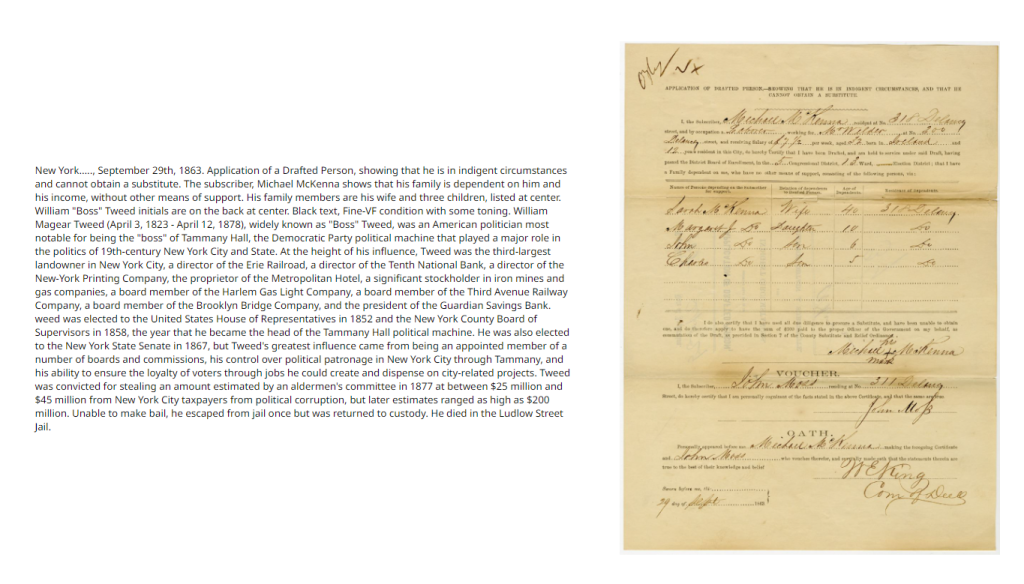 New York....., September 29th, 1863. Application of a Drafted Person, showing that he is in indigent circumstances
and cannot obtain a substitute. The subscriber, Michael McKenna shows that his family is dependent on him and
his income, without other means of support. His family members are his wife and three children, listed at center.
William "Boss" Tweed initials are on the back at center. Black text, Fine-VF condition with some toning. William
Magear Tweed (April 3, 1823 - April 12, 1878), widely known as "Boss" Tweed, was an American politician most
notable for being the "boss" of Tammany Hall, the Democratic Party political machine that played a major role in
the politics of 19th-century New York City and State. At the height of his influence, Tweed was the third-largest
landowner in New York City, a director of the Erie Railroad, a director of the Tenth National Bank, a director of the
New-York Printing Company, the proprietor of the Metropolitan Hotel, a significant stockholder in iron mines and
gas companies, a board member of the Harlem Gas Light Company, a board member of the Third Avenue Railway
Company, a board member of the Brooklyn Bridge Company, and the president of the Guardian Savings Bank.
weed was elected to the United States House of Representatives in 1852 and the New York County Board of
Supervisors in 1858, the year that he became the head of the Tammany Hall political machine. He was also elected
to the New York State Senate in 1867, but Tweed's greatest influence came from being an appointed member of a
number of boards and commissions, his control over political patronage in New York City through Tammany, and
his ability to ensure the loyalty of voters through jobs he could create and dispense on city-related projects. Tweed
was convicted for stealing an amount estimated by an aldermen's committee in 1877 at between $25 million and
$45 million from New York City taxpayers from political corruption, but later estimates ranged as high as $200
million. Unable to make bail, he escaped from jail once but was returned to custody. He died in the Ludlow Street
Jail.
APPLICATION OF DRAFTED PERSON,—SHOWING THAT HE IS IN INDIGENT CIRCUMSTANCES, AND THAT HE
CANNOT OBTAIN A SUBSTITUTE.
I, the Subscriber, Michael McKenna resident at No. 311 Delancy
street, and by occupation a Laborer working for Mr Welder at No. 200
Delancy street, and receiving salary of per week, aged 52 born in Ireland and
12 years resident in this City, do hereby Certify that I have been Drafted, and am held to service under said Draft, having
passed the District Board of Enrollment, in the 5 Congressional District, 13 Ward, Election District; that I have
a Family dependent on me, who have no other means of support, meaning of the following persons, viz:
Names of Persons depending on the Subscriber for support. Relation of Dependents to Drafted Person. Age of Dependents. Residence of Dependents.
Sarah McKenna Wife 40 311 Delancy
Margaret J Do Daughter 10 Do
John Do Son 6 Do
Charles Do Son 5 Do
I do also certify that I have used all due diligence to procure a Substitute, and have been unable to obtain
one, and do therefore apply to have the sum of $300 paid to the proper Officer of the Government on my behalf, as
Michael McKenna
his
mark
VOUCHER.
I, the Subscriber, John Moss residing at No. 311 Delancy
Street, do hereby certify that I am personally cognizant of the facts stated in the above Certificate, and that the same are true.
John Moss
OATH.
Personally appeared before me, Michael McKenna making the foregoing Certificate
and John Moss who voucher thereto, and severally made oath that the statements therein are
true to the best of their knowledge and belief
W E King
Com of Deeds
Sworn before me, this
29 day of Sept 1863